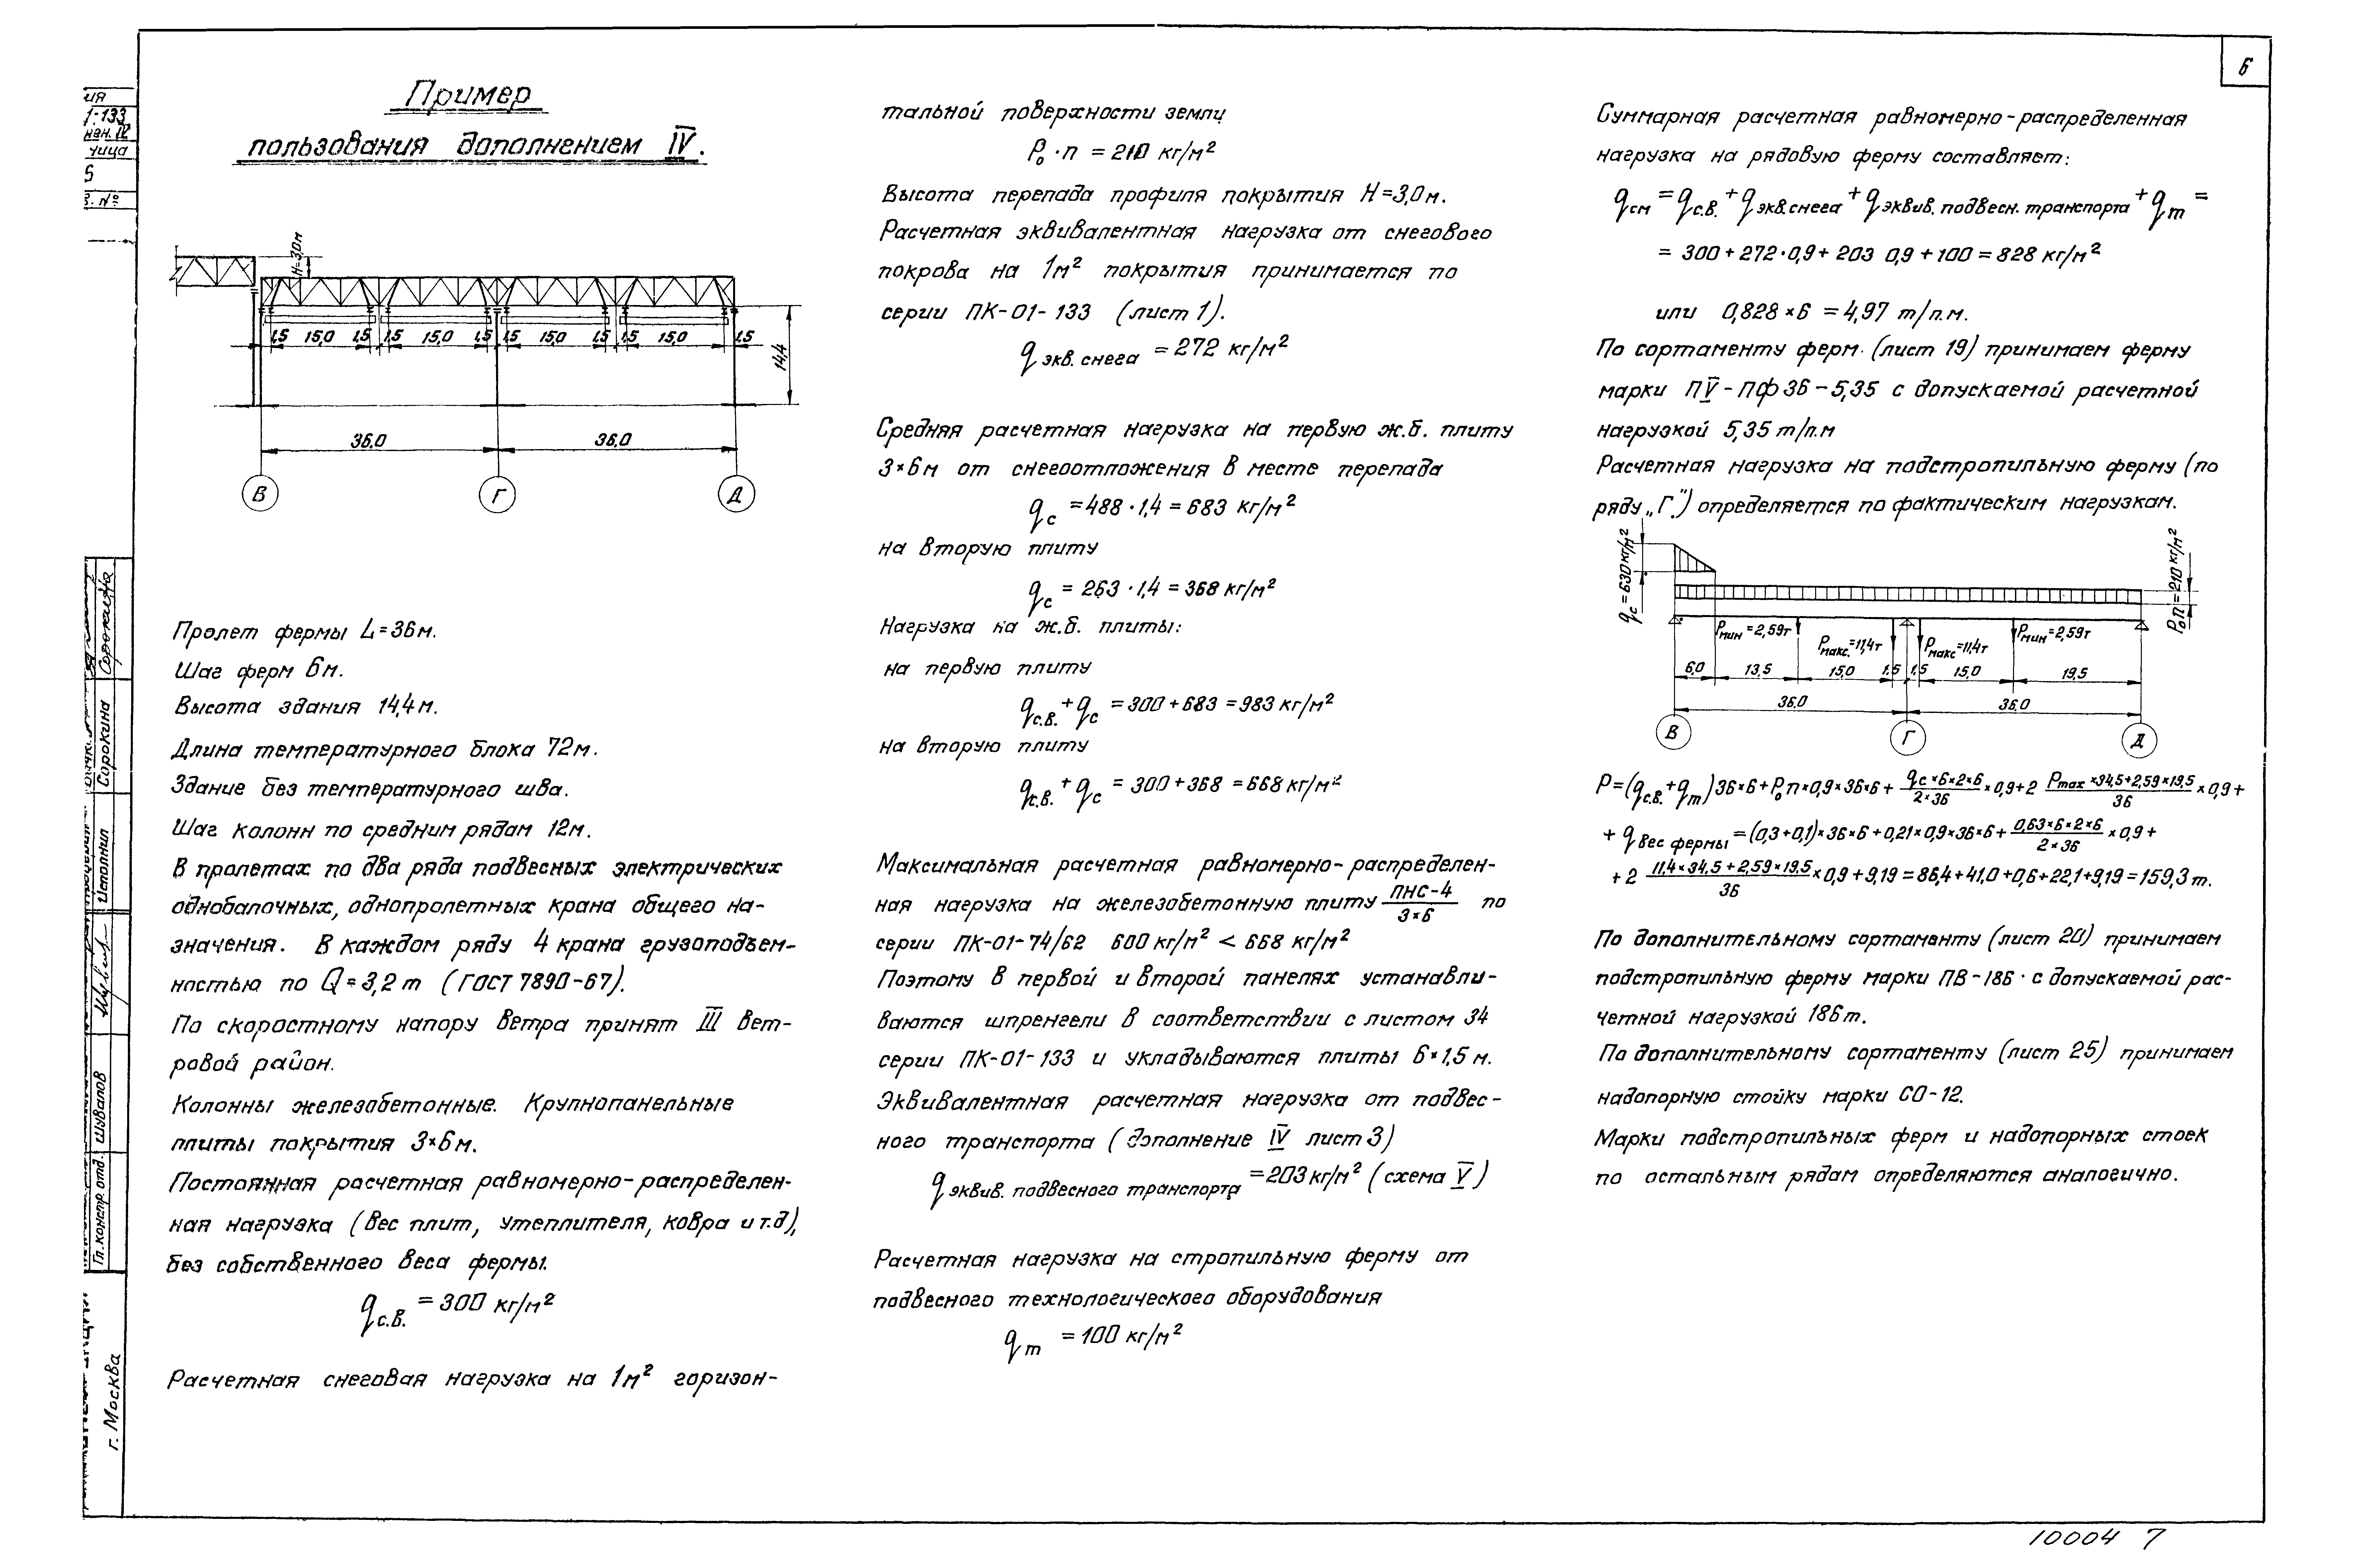 6
Пример
пользования дополнением IV.
H=3,0м
1,5 15,0 1,5 1,5 15,0 1,5 1,5 15,0 1,5 1,5 15,0 1,5
14,4
36.0 36.0
В Г Д
Пролет фермы L=36м.
Шаг ферм 6м.
Высота здания 14,4м.
Длина температурного блока 72м.
Здание без температурного шва.
Шаг колонн по средним рядам 12м.
В пролетах по два ряда подвесных электрических
однобалочных, однопролетных крана общего на-
значения. В каждом ряду 4 крана грузоподъем-
ностью по Q=3,2т (ГОСТ 7890-67).
По скоростному напору ветра принят III вет-
ровой район.
Колонны железобетонные. Крупнопанельные
плиты покрытия 3×6м.
Постоянная расчетная равномерно-распределен-
ная нагрузка (вес плит, утеплителя, ковра и т.д),
без собственного веса фермы.
qс.в. = 300 кг/м²
Расчетная снеговая нагрузка на 1м² горизон-
тальной поверхности земли
Pо·п = 210 кг/м²
Высота перепада профиля покрытия H=3,0м.
Расчетная эквивалентная нагрузка от снегового
покрова на 1м² покрытия принимается по
серии ПК-01-133 (лист 1).
qэкв.снега = 272 кг/м²
Средняя расчетная нагрузка на первую ж.б. плиту
3×6м от снегоотложения в месте перепада
qс = 488·1,4 = 683 кг/м²
на вторую плиту
qс = 263·1,4 = 368 кг/м²
Нагрузка на ж.б. плиты:
на первую плиту
qс.в. + qс = 300 + 683 = 983 кг/м²
на вторую плиту
qс.в. + qс = 300 + 368 = 668 кг/м²
Максимальная расчетная равномерно-распределен-
ная нагрузка на железобетонную плиту ПНС-4/3×6 по
серии ПК-01-74/62 600 кг/м² < 668 кг/м²
Поэтому в первой и второй панелях устанавли-
ваются шпренгели в соответствии с листом 34
серии ПК-01-133 и укладываются плиты 6×1,5 м.
Эквивалентная расчетная нагрузка от подвес-
ного транспорта (дополнение IV лист 3)
qэквив. подвесного транспорта = 203 кг/м² (схема V)
Расчетная нагрузка на стропильную ферму от
подвесного технологического оборудования
qт = 100 кг/м²
Суммарная расчетная равномерно-распределенная
нагрузка на рядовую ферму составляет:
qсм = qс.в. + qэкв.снега + qэквив. подвесн. транспорта + qт =
= 300 + 272·0,9 + 203 0,9 + 100 = 828 кг/м²
или 0,828×6 = 4,97 т/п.м.
По сортаменту ферм (лист 19) принимаем ферму
марки ПV-ПФ36-5,35 с допускаемой расчетной
нагрузкой 5,35 т/п.м
Расчетная нагрузка на подстропильную ферму (по
ряду „Г") определяется по фактическим нагрузкам.
qс = 630 кг/м²
Pо п = 210 кг/м²
Pмин = 2,59т Pмакс. = 11,4т Pмакс = 11,4т Pмин = 2,59т
6,0 13,5 15,0 1.5 1,5 15,0 19,5
36.0 36.0
В Г Д
P = (qс.в. + qт) 36×6 + Pо п×0,9×36×6 + qс×6×2×6/2×36 ×0,9 + 2 Pmax×34,5+2,59×19,5/36 ×0,9 +
+ qвес фермы = (0,3+0,1)×36×6 + 0,21×0,9×36×6 + 0,63×6×2×6/2×36 ×0,9 +
+ 2 11,4×34.5+2,59×19.5/36 ×0,9 + 9,19 = 86,4 + 41,0 + 0,6 + 22,1 + 9,19 = 159,3 т.
По дополнительному сортаменту (лист 20) принимаем
подстропильную ферму марки ПВ-186 с допускаемой рас-
четной нагрузкой 186т.
По дополнительному сортаменту (лист 25) принимаем
надопорную стойку марки СО-12.
Марки подстропильных ферм и надопорных стоек
по остальным рядам определяются аналогично.
Сорокина
Исполнил
Шувалов
Гл. констр. отд.
г. Москва
10004 7